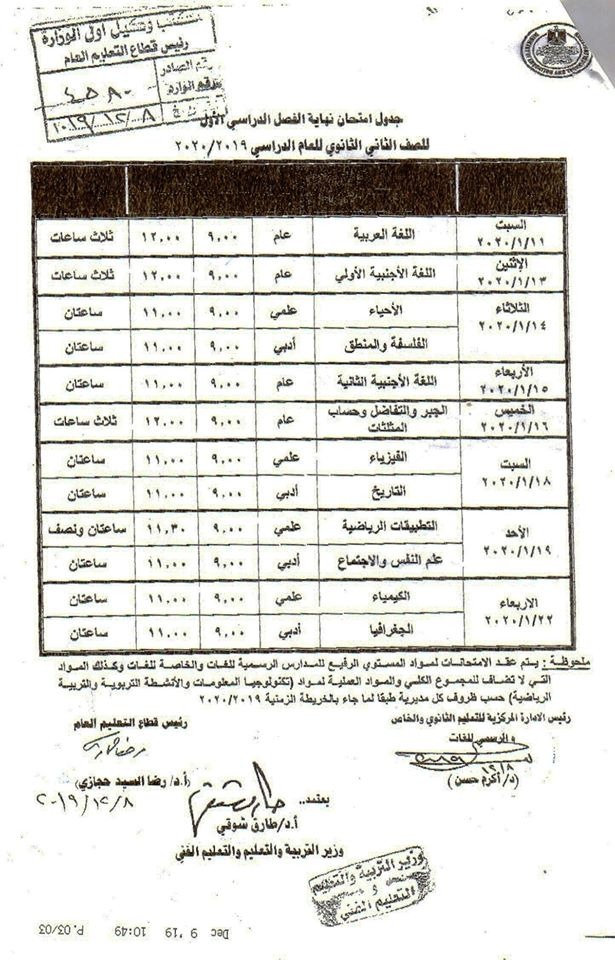 مكتب وكيل أول الوزارة
رئيس قطاع التعليم العام
رقم الصادر
٤٥٨٠
رقم الوارد
٢٠١٩/١٢/٨
جدول امتحان نهاية الفصل الدراسي الأول
للصف الثاني الثانوي للعام الدراسي ٢٠٢٠/٢٠١٩
السبت ٢٠٢٠/١/١١ اللغة العربية عام ٩,٠٠ ١٢,٠٠ ثلاث ساعات
الإثنين ٢٠٢٠/١/١٣ اللغة الأجنبية الأولي عام ٩,٠٠ ١٢,٠٠ ثلاث ساعات
الثلاثاء ٢٠٢٠/١/١٤ الأحياء علمي ٩,٠٠ ١١,٠٠ ساعتان
الفلسفة والمنطق أدبي ٩,٠٠ ١١,٠٠ ساعتان
الأربعاء ٢٠٢٠/١/١٥ اللغة الأجنبية الثانية عام ٩,٠٠ ١١,٠٠ ساعتان
الخميس ٢٠٢٠/١/١٦ الجبر والتفاضل وحساب المثلثات عام ٩,٠٠ ١٢,٠٠ ثلاث ساعات
السبت ٢٠٢٠/١/١٨ الفيزياء علمي ٩,٠٠ ١١,٠٠ ساعتان
التاريخ أدبي ٩,٠٠ ١١,٠٠ ساعتان
الأحد ٢٠٢٠/١/١٩ التطبيقات الرياضية علمي ٩,٠٠ ١١,٣٠ ساعتان ونصف
علم النفس والاجتماع أدبي ٩,٠٠ ١١,٠٠ ساعتان
الاربعاء ٢٠٢٠/١/٢٢ الكيمياء علمي ٩,٠٠ ١١,٠٠ ساعتان
الجغرافيا أدبي ٩,٠٠ ١١,٠٠ ساعتان
ملحوظة : يتم عقد الامتحانات لمواد المستوي الرفيع للمدارس الرسمية للغات والخاصة للغات وكذلك المواد
التي لا تضاف للمجموع الكلي والمواد العملية لمواد (تكنولوجيا المعلومات والأنشطة التربوية والتربية
الرياضية) حسب ظروف كل مديرية طبقا لما جاء بالخريطة الزمنية ٢٠٢٠/٢٠١٩
رئيس الادارة المركزية للتعليم الثانوي والخاص
والرسمي للغات
(د/ أكرم حسن)
رئيس قطاع التعليم العام
(أ.د/ رضا السيد حجازي)
٢٠١٩/١٢/٨
يعتمد..
أ.د/طارق شوقي
وزير التربية والتعليم والتعليم الفني
وزير التربية والتعليم
و
التعليم الفني
Dec 9 '19 10:49 P.03/03